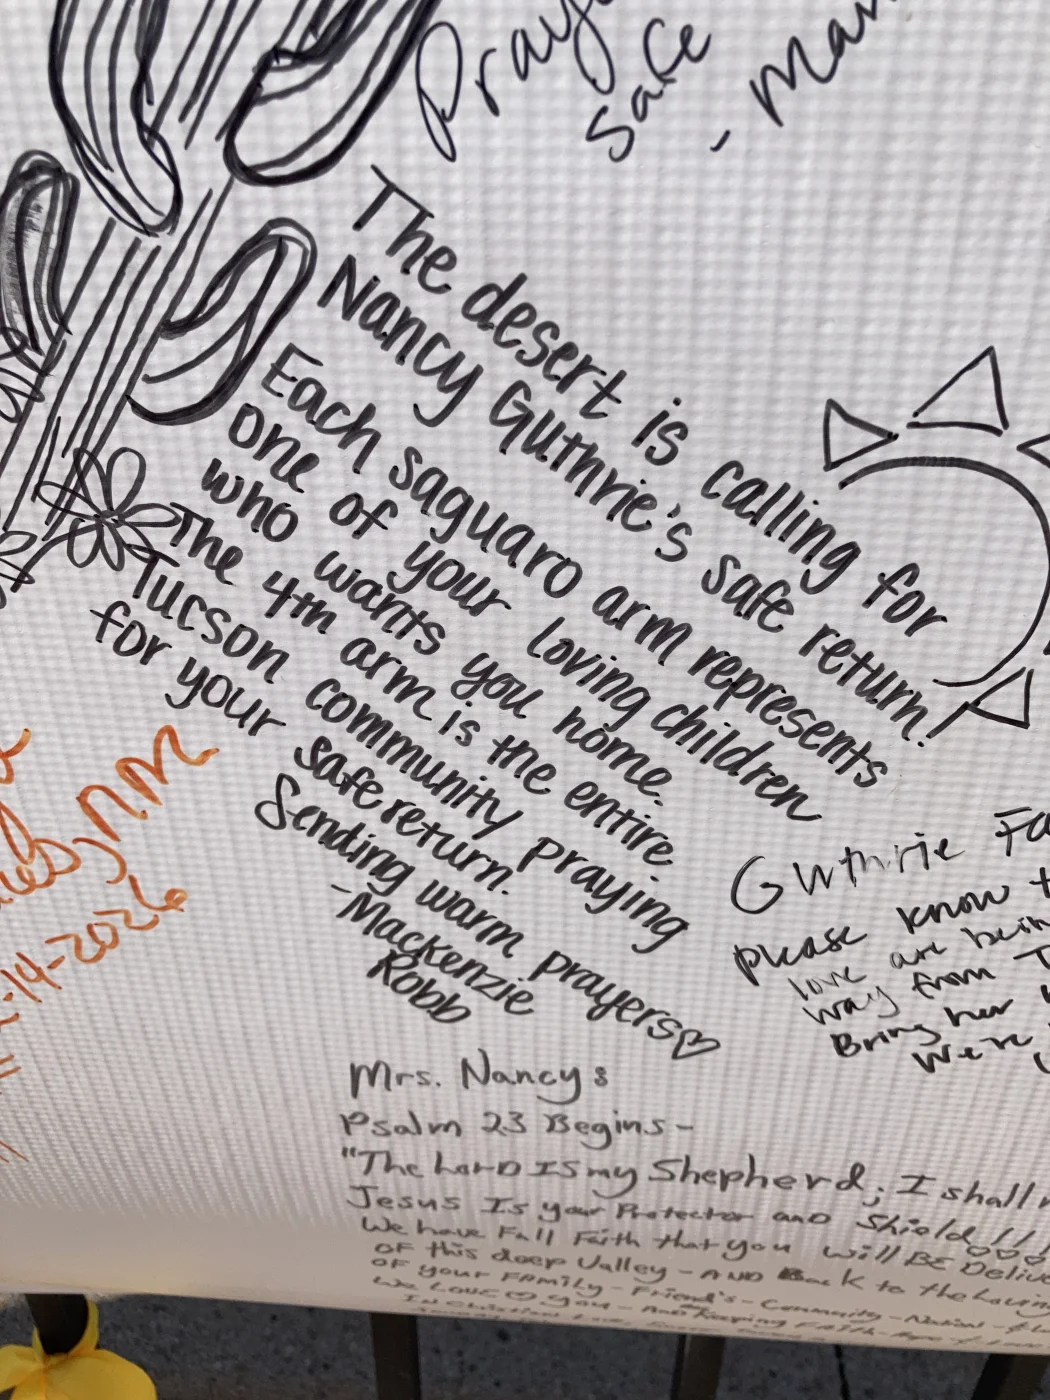 Pray
safe
- Man
The desert is calling for
Nancy Guthrie's safe return!
Each saguaro arm represents
one of your loving children
who wants you home.
The 4th arm is the entire
Tucson community praying
for your safe return.
Sending warm prayers♡
-Mackenzie
Robb
14-2026
Guthrie Fa
please know t
love are bein
way from T
Bring her
We're
Mrs. Nancy:
Psalm 23 Begins-
"The LORD IS my Shepherd; I shall n
Jesus Is your Protector and Shield!!!
We have Full Faith that you will BE Delive
OF this deep Valley - AND Back to the Loving
OF your FAMILY - Friend's - Community - Nation -
We Love you - And Keeping FAITH - Hope
In Christian Love